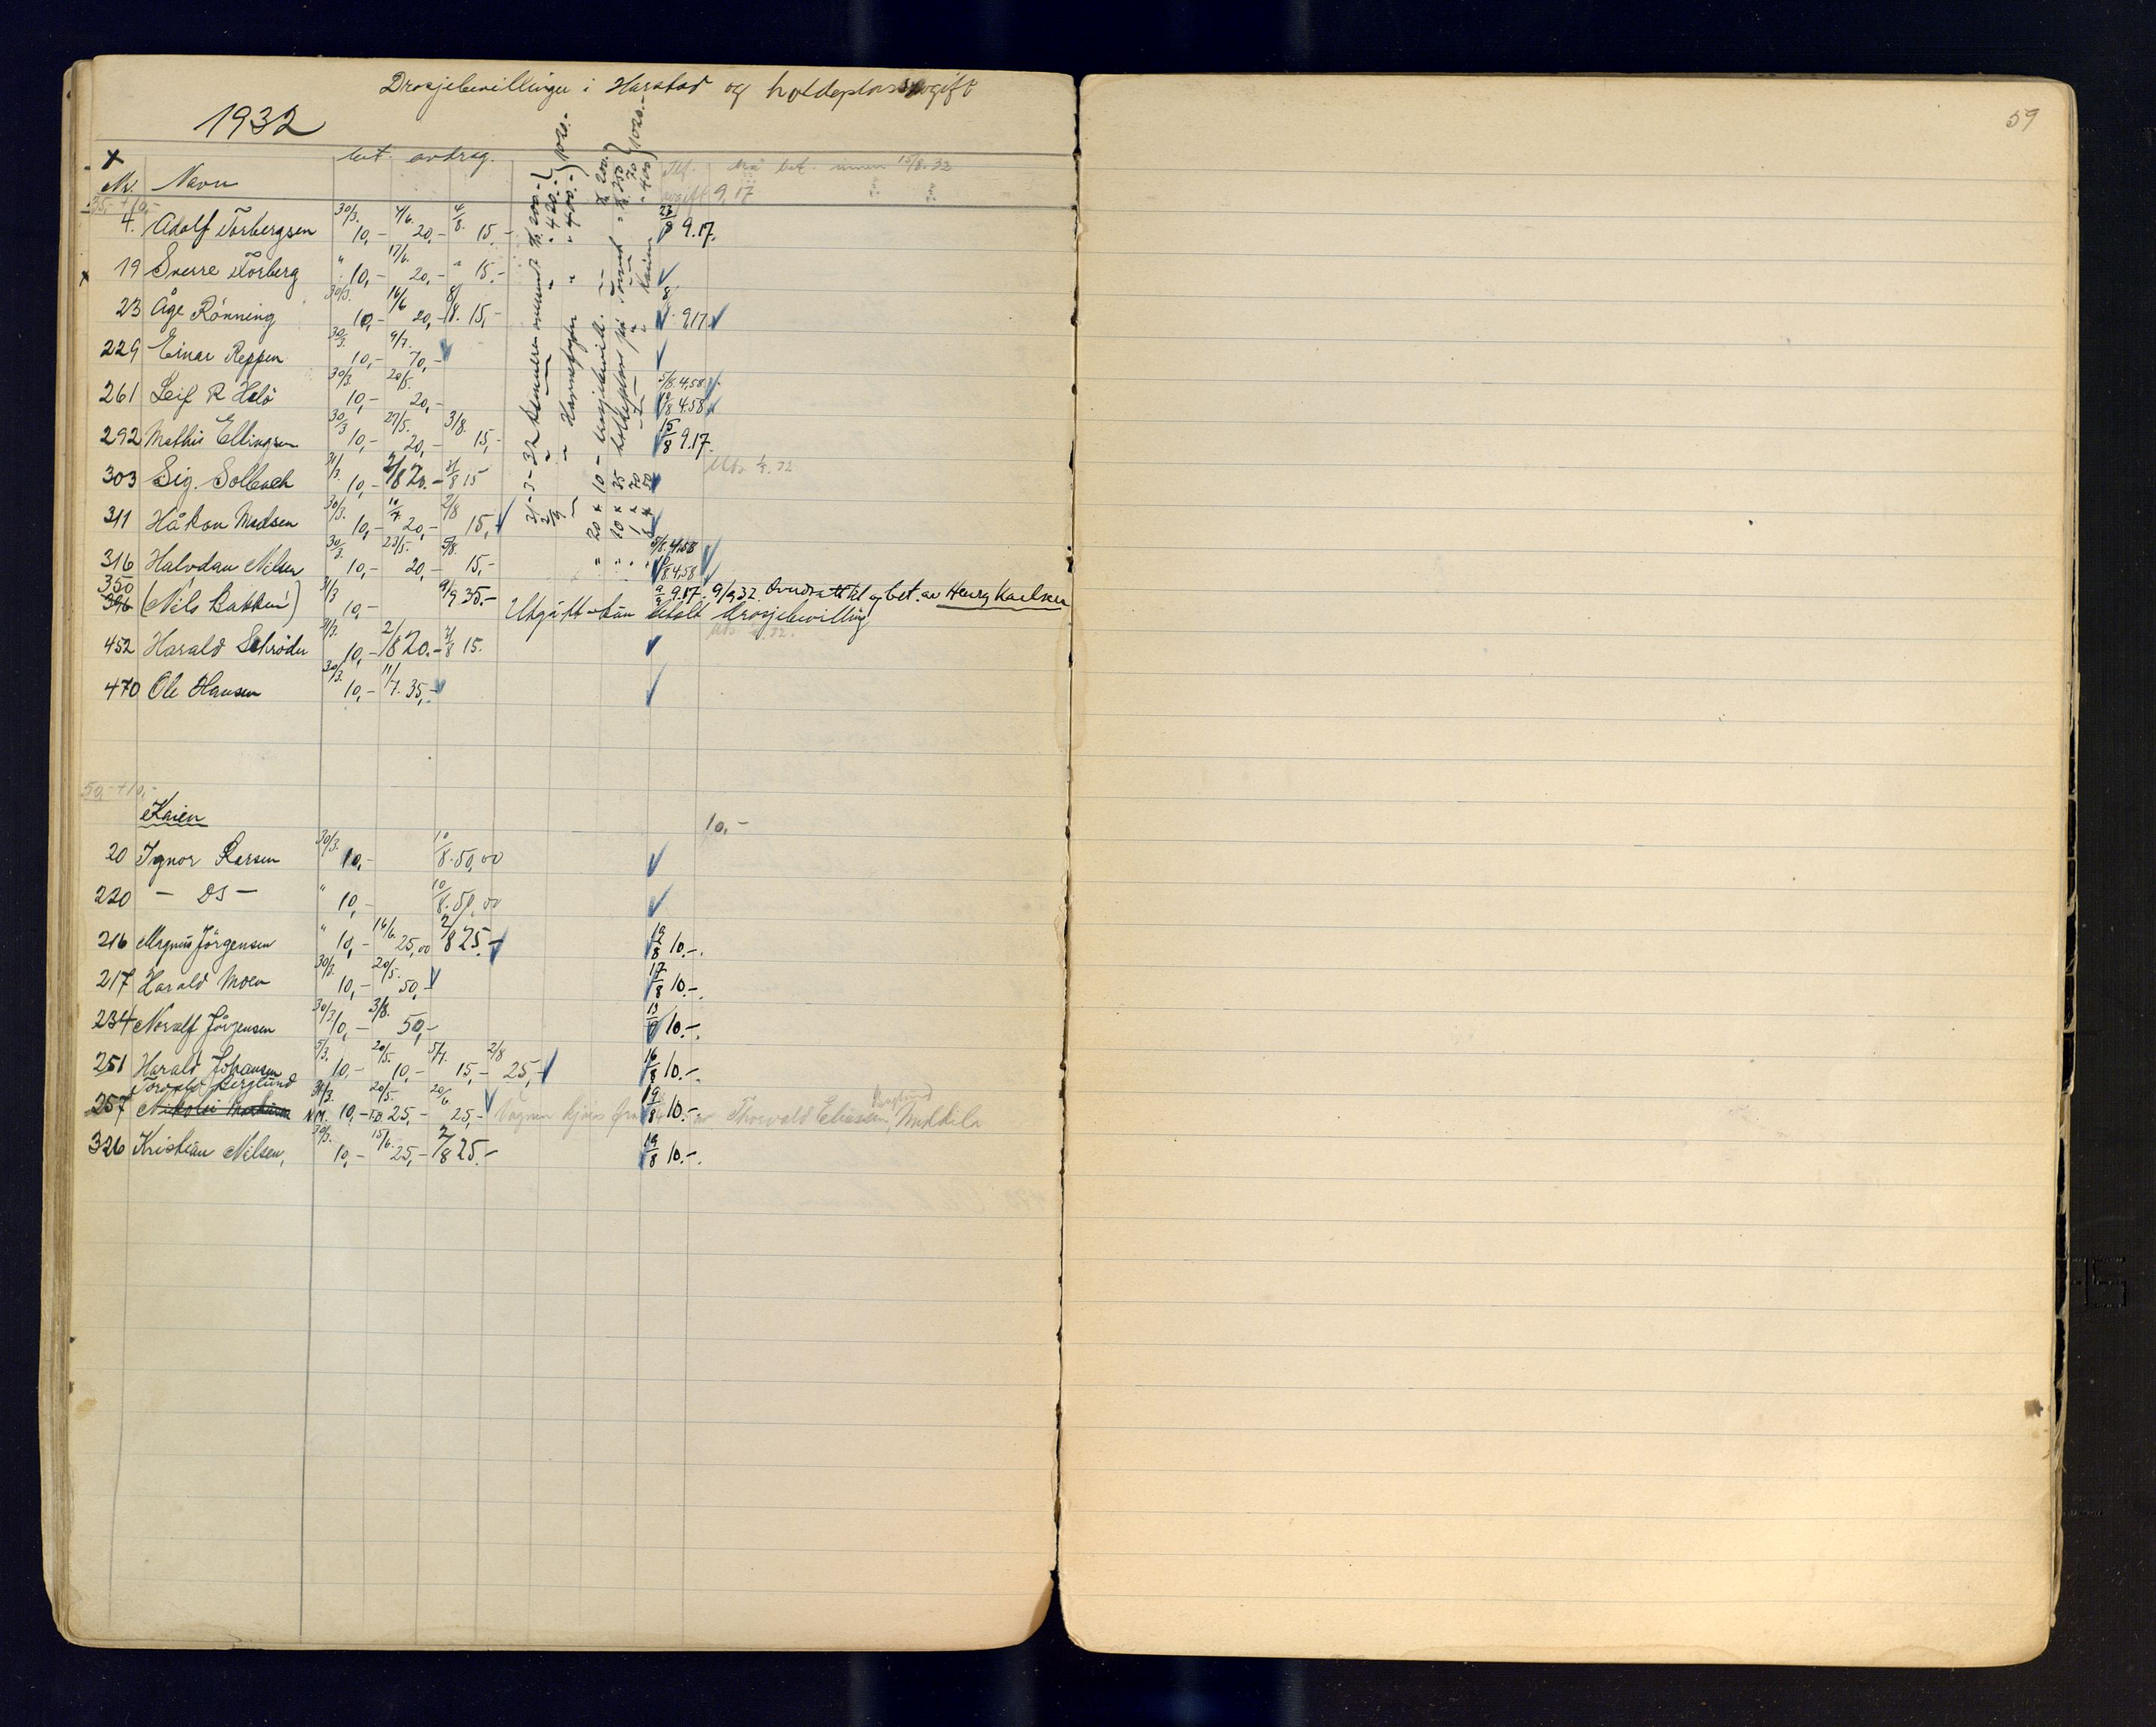 Drosjebevillinger i Harstad og holdeplassavgift
59
1932
bet. avdrag.
Tlf. må bet. innen 15/8. 32
Nr. Navn avgift 9,17
35,- + 10,-
4. Adolf Torbergsen 30/3. 10,- 4/6. 20,- 4/8. 15.- 23/8 9.17.
x 19 Sverre Torberg " 10,- 17/6. 20,- " 15.-
23 Åge Rönning 30/3. 10,- 16/6 20,- 8/8. 15,- 9,17.
229 Einar Reppen 30/3. 10,- 9/7. 70,-
261 Leif R Holö 30/3. 10,- 20/5. 20,- 5/8. 4,58. 19/8 4.58
292 Mathis Ellingsen 30/3 10,- 27/5. 20,- 3/8. 15,- 15/8 9.17.
303 Sig. Solbach 31/3. 10,- 2/8 20.- 31/8 15
311 Håkon Madsen 30/3. 10,- 14/7 20,- 2/8 15,-
316 Halvdan Nilsen 30/3. 10,- 23/5. 20,- 5/8. 15,- 5/8. 4,58 19/8 4,58
350 396 (Nils Bakken) 31/3 10,- 9/9 35.- 9/9 9.17. 9/9 32. Overdratt til og bet. av Henry Karlsen
Utgått - kun betalt drosjebevilling
452 Harald Schröder 31/3. 10,- 2/8 20.- 31/8 15.
470 Ole Hansen 30/3. 10,- 11/7. 35,-
50,- + 10,-
Kaien 10,-
20 Ignor Larsen 30/3. 10,- 10/8. 50,00
220 - DS - " 10,- 10/8. 50,00
216 Magnus Jörgensen " 10,- 16/6. 25,00 2/8 25.- 19/8 10.-.
217 Harald Moen 30/3. 10,- 20/5. 50,- 17/8 10.-.
234 Noralf Jörgensen 30/3. 10,- 3/8. 50,- 13/8 10.-.
251 Harald Johansen 5/3. 10,- 20/5. 10,- 5/7. 15,- 2/8 25,- 16/8 10.-.
Torvald Berglund
257 Nikolai 31/3. N.M. 10,- 20/5. 25,- 20/6. 25,- 19/8 10.-. Vognen kjøres av Thorvald Eliesen Berglund, Medkila
326 Kristian Nilsen, 30/3. 10,- 15/6. 25,- 2/8 25.- 19/8 10.-.
31-3-32 Kemneren omsendt kr. 200.-
" 420.-
" Havnefogden " 400.- } 1020.-
20 x 10 - drosjebevill. - kr. 200.-
" 10 x 35 holdeplass på Torvet " kr. 350
" 1 x 70 " 70
" x 50 Kaien " 400 } 1020.-